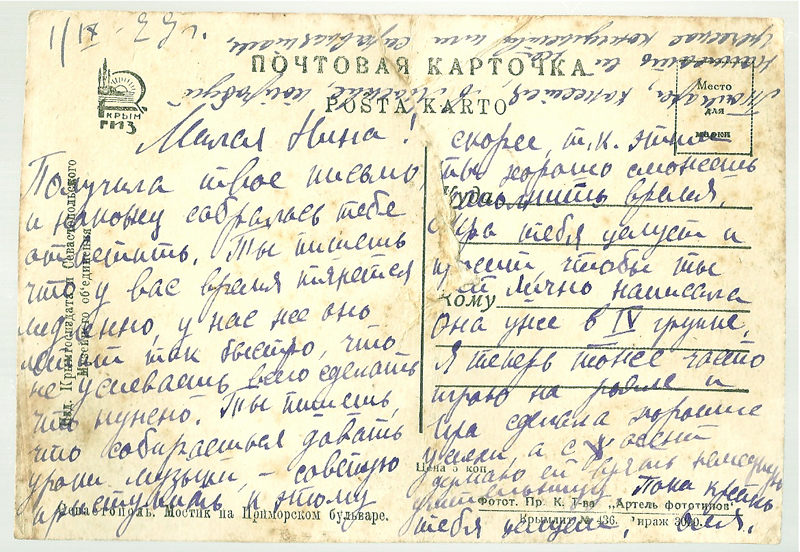 1/IX - 33 г.
ПОЧТОВАЯ КАРТОЧКА
POSTA KARTO
Место
для
марки
КРЫМ
ГИЗ
Изд. Крымгосиздата и Севастопольского
Музейного об'единения
Куда
Кому
Милая Нина!
Получила твое письмо,
и наконец собралась тебе
ответить. Ты пишешь
что у вас время тянется
медленно, у нас же оно
летит так быстро, что
не успеваешь всего сделать
что нужно. Ты пишешь,
что собираешься давать
уроки музыки, – советую
приступить к этому
скорее, т.к. этим
ты хорошо сможешь
заполнить время.
Ира тебя целует и
просит, чтобы ты
ей лично написала
Она уже в IV группе.
Я теперь тоже часто
играю на рояле и
Ира сделала хорошие
успехи, а с осени
думаю ей взять немецкую
учительницу. Пока крепко
тебя целую,
Цена 5 коп.
Севастополь. Мостик на Приморском бульваре.
Фотот. Пр. К. Т-ва „Артель фототипов"
Крымлит № 436. Тираж 3000.
Тамара, кажется, в
написать ей или
греческое консульство или